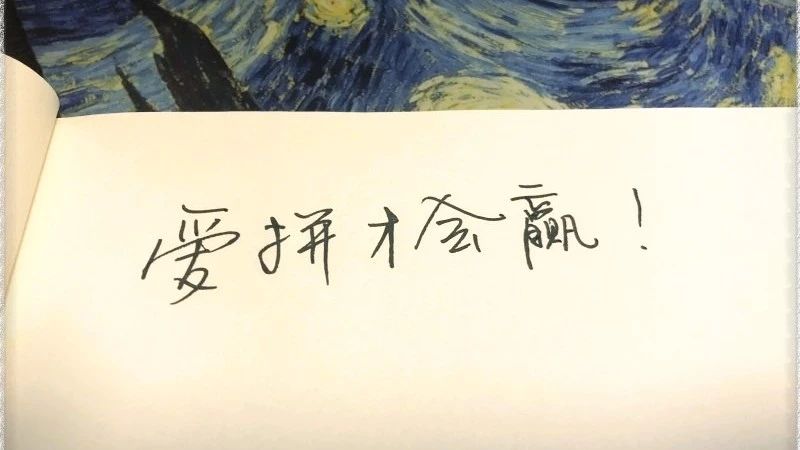 爱拼才会赢！